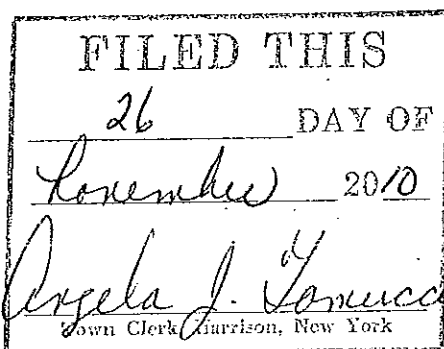 FILED THIS
26 DAY OF
November 2010
Angela J.
Town Clerk Harrison, New York